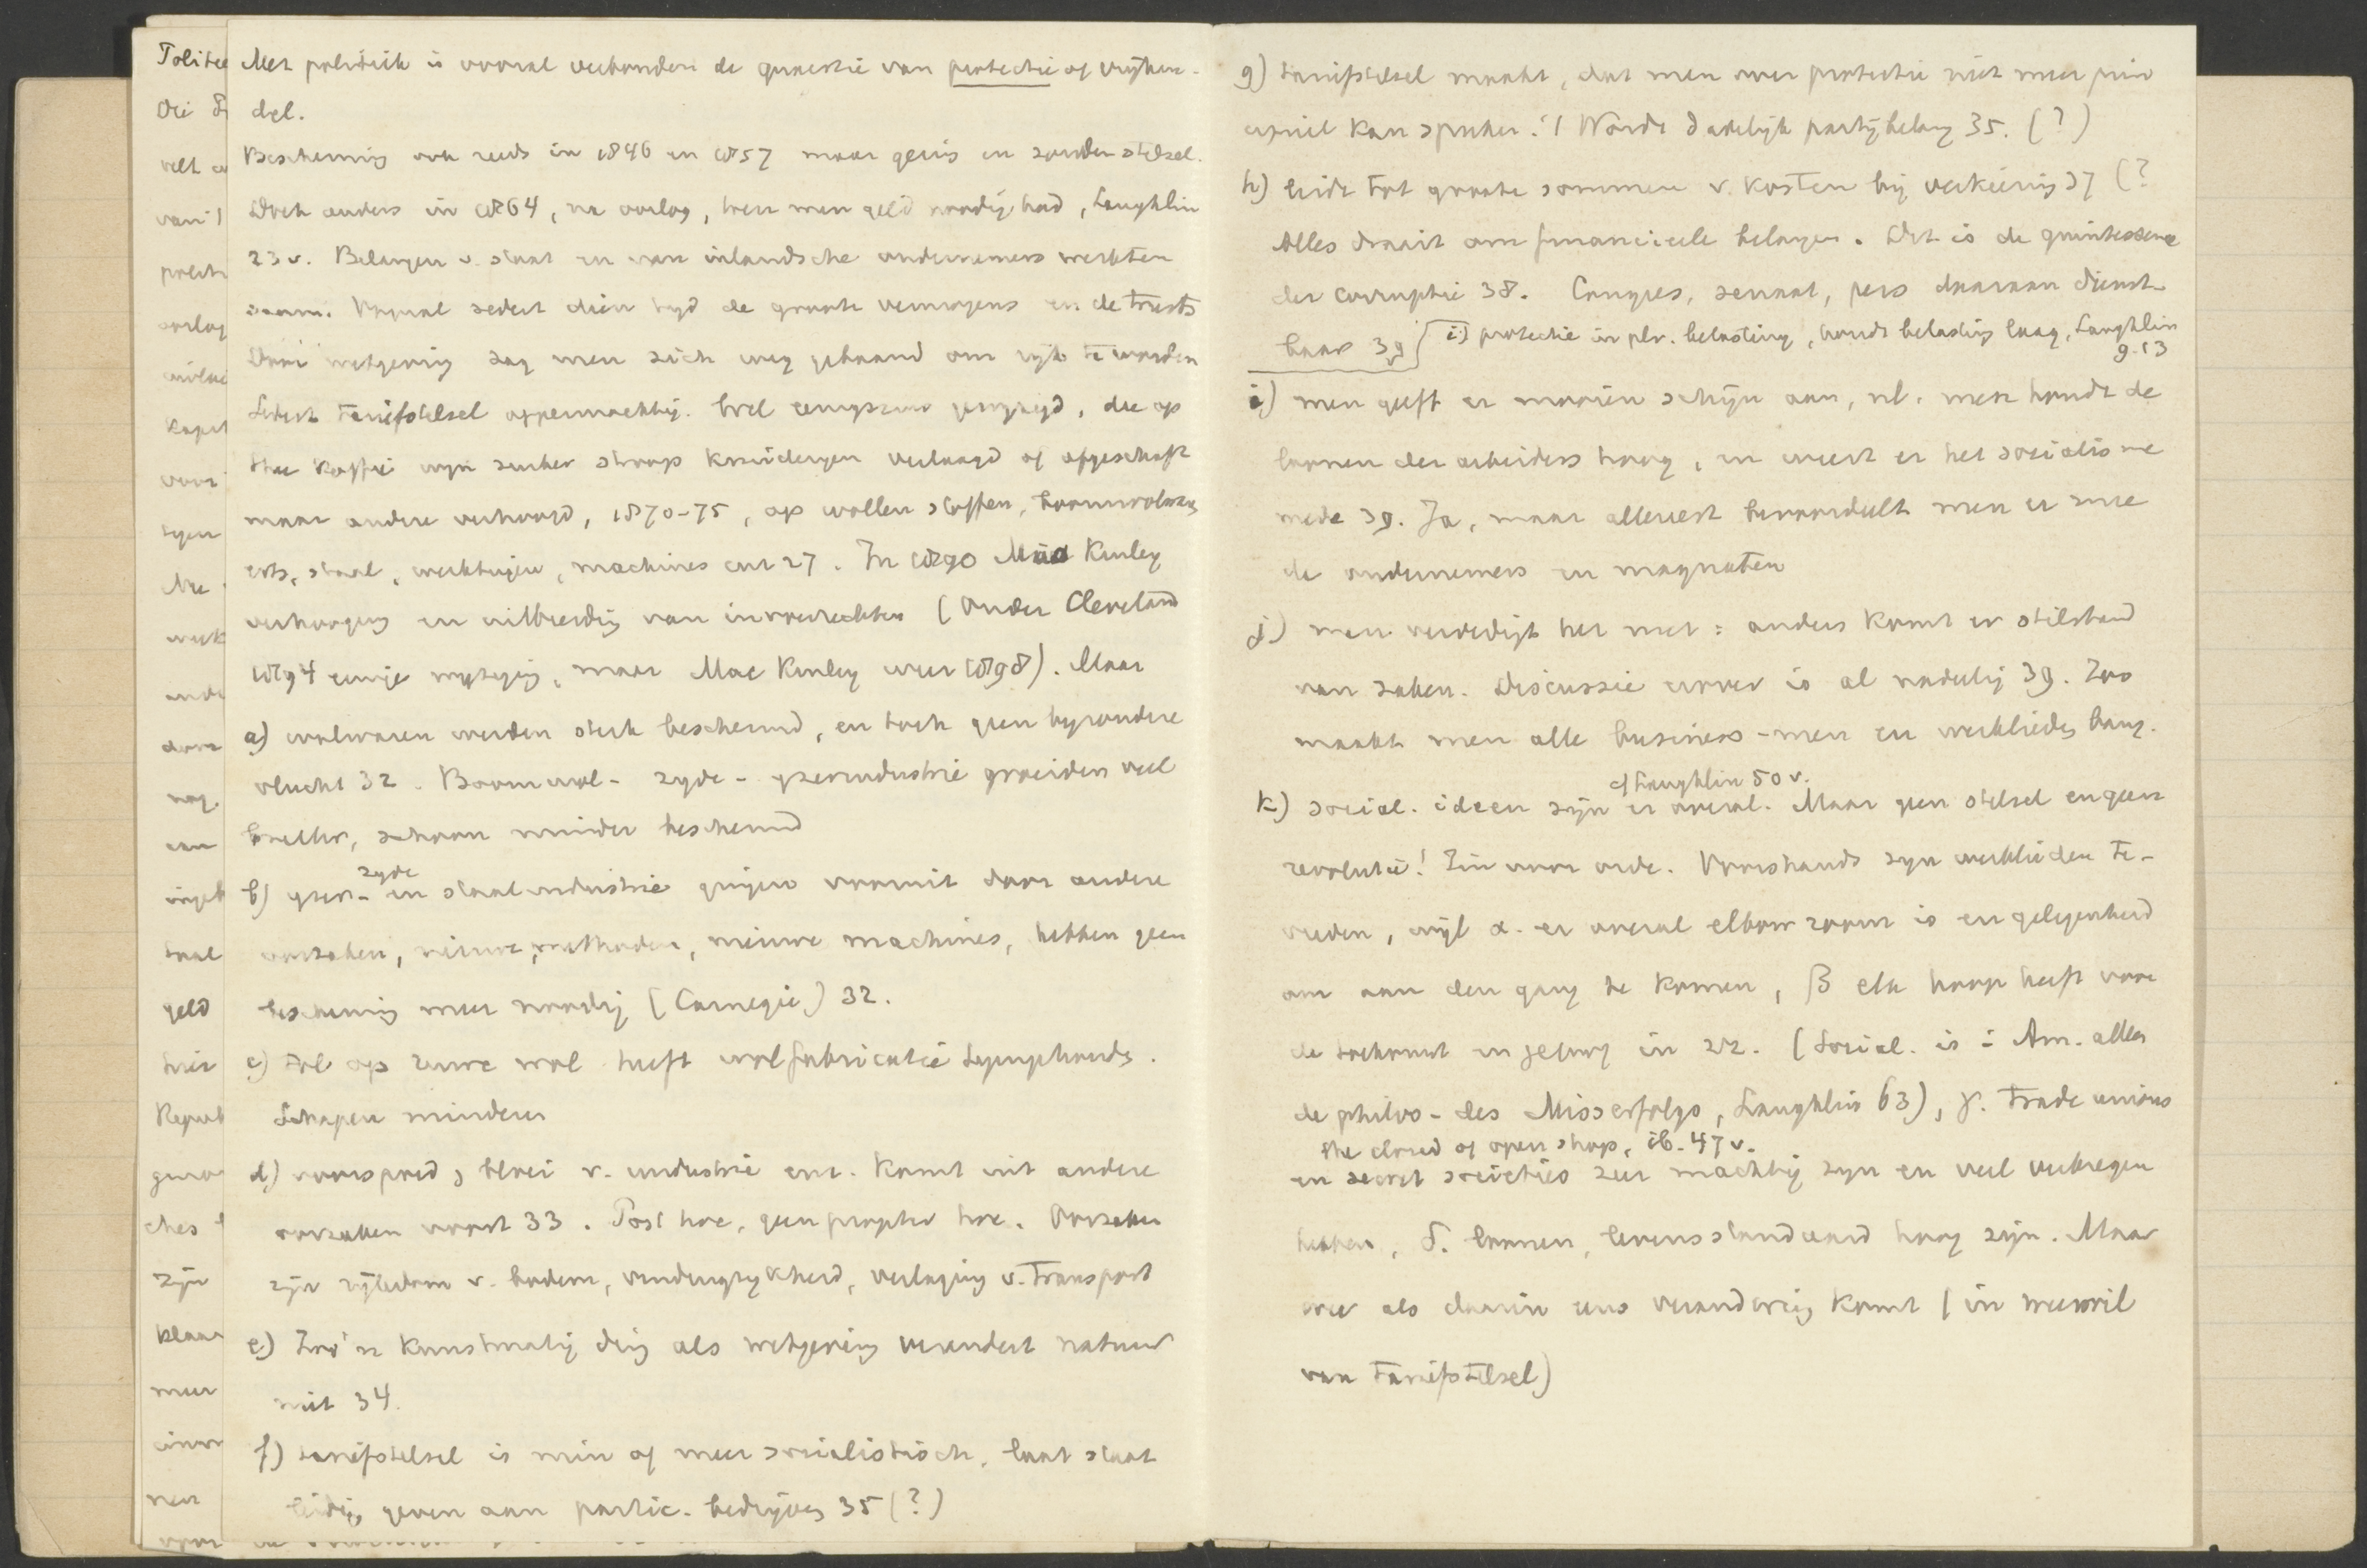 Met politiek is vooral verbonden de quaestie van protectie of vrijhan-
del.
Bescherming ook reeds in 1846 en 1857 maar gering en zonder stelsel.
Doch anders in 1864, na oorlog, toen men geld noodig had, Laughlin
23 v. Belangen v. staat en van inlandsche ondernemers werkten
saam. Vooral sedert dien tijd de groote vermogens en de trusts
Door wetgeving zag men zich weg gebaand om rijk te worden
Sedert tariefstelsel oppermachtig. Wel eenigszins gewijzigd, die op
thee koffie wijn suiker stroop kruiderijen verlaagd of afgeschaft
maar andere verhoogd, 1870-75, op wollen stoffen, boomwolwaren
erts, staal, werktuigen, machines enz 27. In 1890 Mac Kinley
verhooging en uitbreiding van invoerrechten (Onder Cleveland
1894 eenige wijziging, maar Mac Kinley weer 1898). Maar
a) wolwaren werden sterk beschermd, en toch geen bijzondere
vlucht 32. Boomwol- zijde- ijzerindustrie groeiden veel
sneller, schoon minder beschermd
b) ijzer- zijde en staalindustrie gingen vooruit door andere
oorzaken, nieuwe methoden, nieuwe machines, hebben geen
bescherming meer noodig (Carnegie) 32.
c) tol op ruwe wol heeft wolfabricatie
Schapen minderen
d) voorspoed, bloei v. industrie enz. komt uit andere
oorzaken voort 33. Post hoc, geen propter hoc. Oorzaken
zijn rijkdom v. bodem, vindingrijkheid, verlaging v. transport
e) Zoo'n kunstmatig ding als wetgeving verandert natuur
niet 34.
f) tariefstelsel is min of meer socialistisch, laat staat
leiding geven aan partic. bedrijven 35 (?)
g) tariefstelsel maakt, dat men over protectie niet meer prin
cipieel kan spreken! Wordt dadelijk partijbelang 35. (?)
h) leidt tot groote sommen v. kosten bij verkiezing 37 (?
Alles draait om financieele belangen. Dit is de quintessence
der corruptie 38. Congres, senaat, pers daaraan dienst-
baar 39 i) protectie in plv. belasting, houdt belasting laag, Laughlin
9.13
i) men geeft er mooien schijn aan, nl. men houdt de
loonen der arbeiders hoog, en weert er het socialisme
mede 39. Ja, maar allereerst bevoordeelt men er mee
de ondernemers en magnaten
j) men verdedigt het met: anders komt er stilstand
van zaken. Discussie erover is al nadeelig 39. Zoo
maakt men alle business-men en werklieden bang.
cf Laughlin 50 v.
k) social. ideen zijn er overal. Maar geen stelsel en geen
revolutie! Zin voor orde. Voorshands zijn werklieden te-
vreden, wijl α. er overal elbow room is en gelegenheid
om aan den gang te komen, β elk hoop heeft voor
de toekomst en (Social. is i. Am. alleen
de philos- des Misserfolgs, Laughlin 63), γ. trade unions
the closed of open shop, ib. 47 v.
en secret societies zeer machtig zijn en veel verkregen
hebben, δ. loonen, levensstandaard hoog zijn. Maar
wee als daarin eens verandering komt (in weerwil
van tariefstelsel)